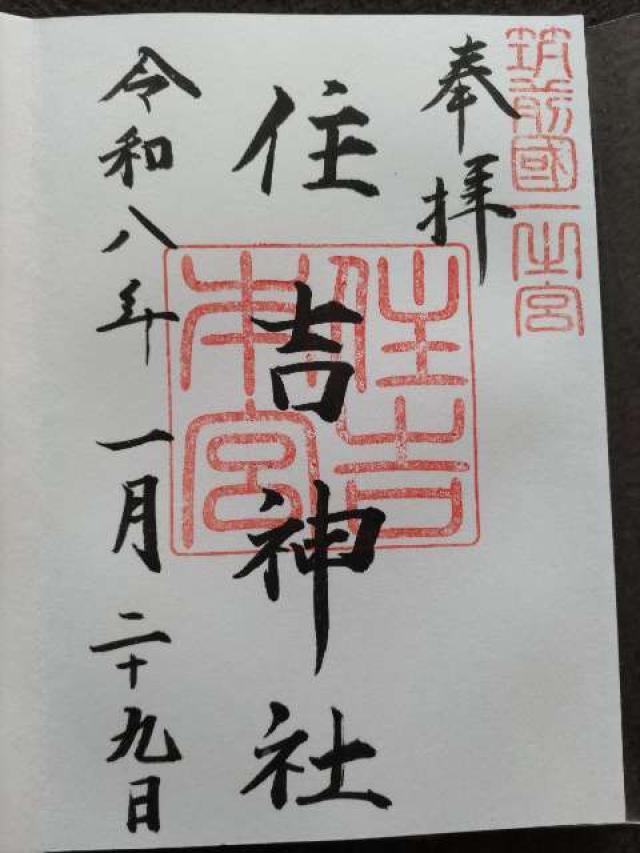 筑前國一之宮
奉拝
住吉神社
住吉本宮
令和八年一月二十九日